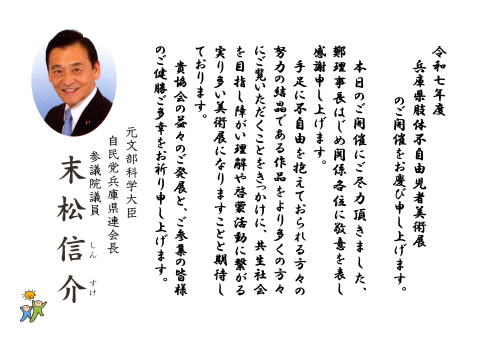 令和七年度
兵庫県肢体不自由児者美術展
のご開催をお慶び申し上げます。
本日のご開催にご尽力頂きました、
鄭理事長はじめ関係各位に敬意を表し
感謝申し上げます。
手足に不自由を抱えておられる方々の
努力の結晶である作品をより多くの方々
にご覧いただくことをきっかけに、共生社会
を目指し障がい理解や啓蒙活動に繋がる
実り多い美術展になりますことと期待し
ております。
貴協会の益々のご発展と、ご参集の皆様
のご健勝ご多幸をお祈り申し上げます。
元文部科学大臣
自民党兵庫県連会長
参議院議員
末松信介
しん すけ